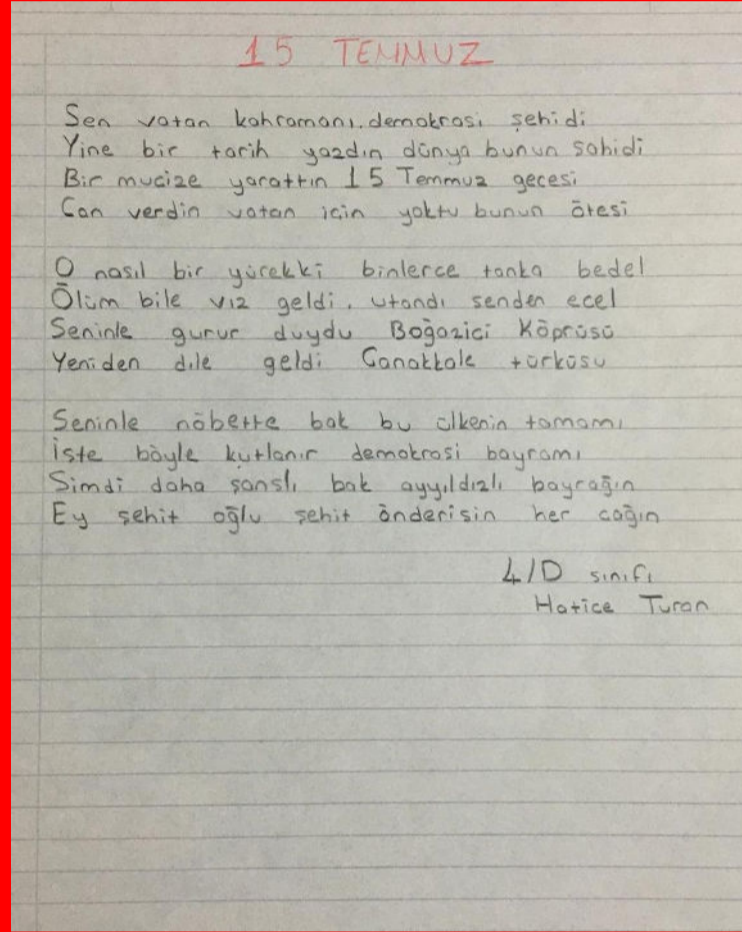 15 TEMMUZ
Sen vatan kahramanı. demokrasi şehidi
Yine bir tarih yazdın dünya bunun sahidi
Bir mucize yarattın 15 Temmuz gecesi
Can verdin vatan için yoktu bunun ötesi
O nasıl bir yürekki binlerce tanka bedel
Ölüm bile vız geldi. utandı senden ecel
Seninle gurur duydu Boğaziçi Köprüsü
Yeniden dile geldi Çanakkale türküsü
Seninle nöbette bak bu ülkenin tamamı
İste böyle kutlanır demokrasi bayramı
Simdi daha şanslı bak ayyıldızlı bayrağın
Ey şehit oğlu şehit önderisin her çağın
4/D sınıfı
Hatice Turan